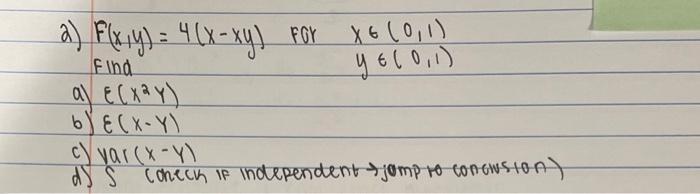 2) F(x,y) = 4(x-xy) FOR x ∈ (0,1)
Find y ∈ (0,1)
a) E(X²Y)
b) E(X-Y)
c) var(X-Y)
d) S (check if independent → jump to conclusion)